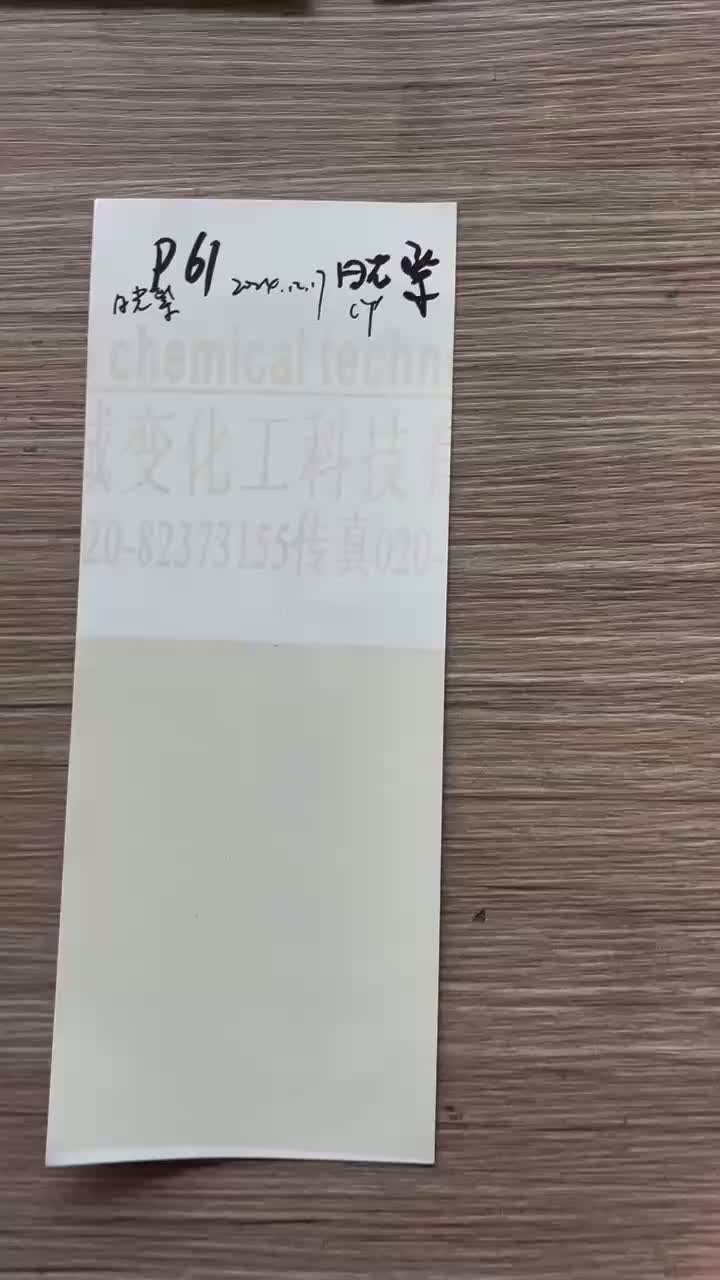 P 61 2024.12.17 日光紫
日光紫 CY
chemical techn
变化工科技
20-82373155传真020-